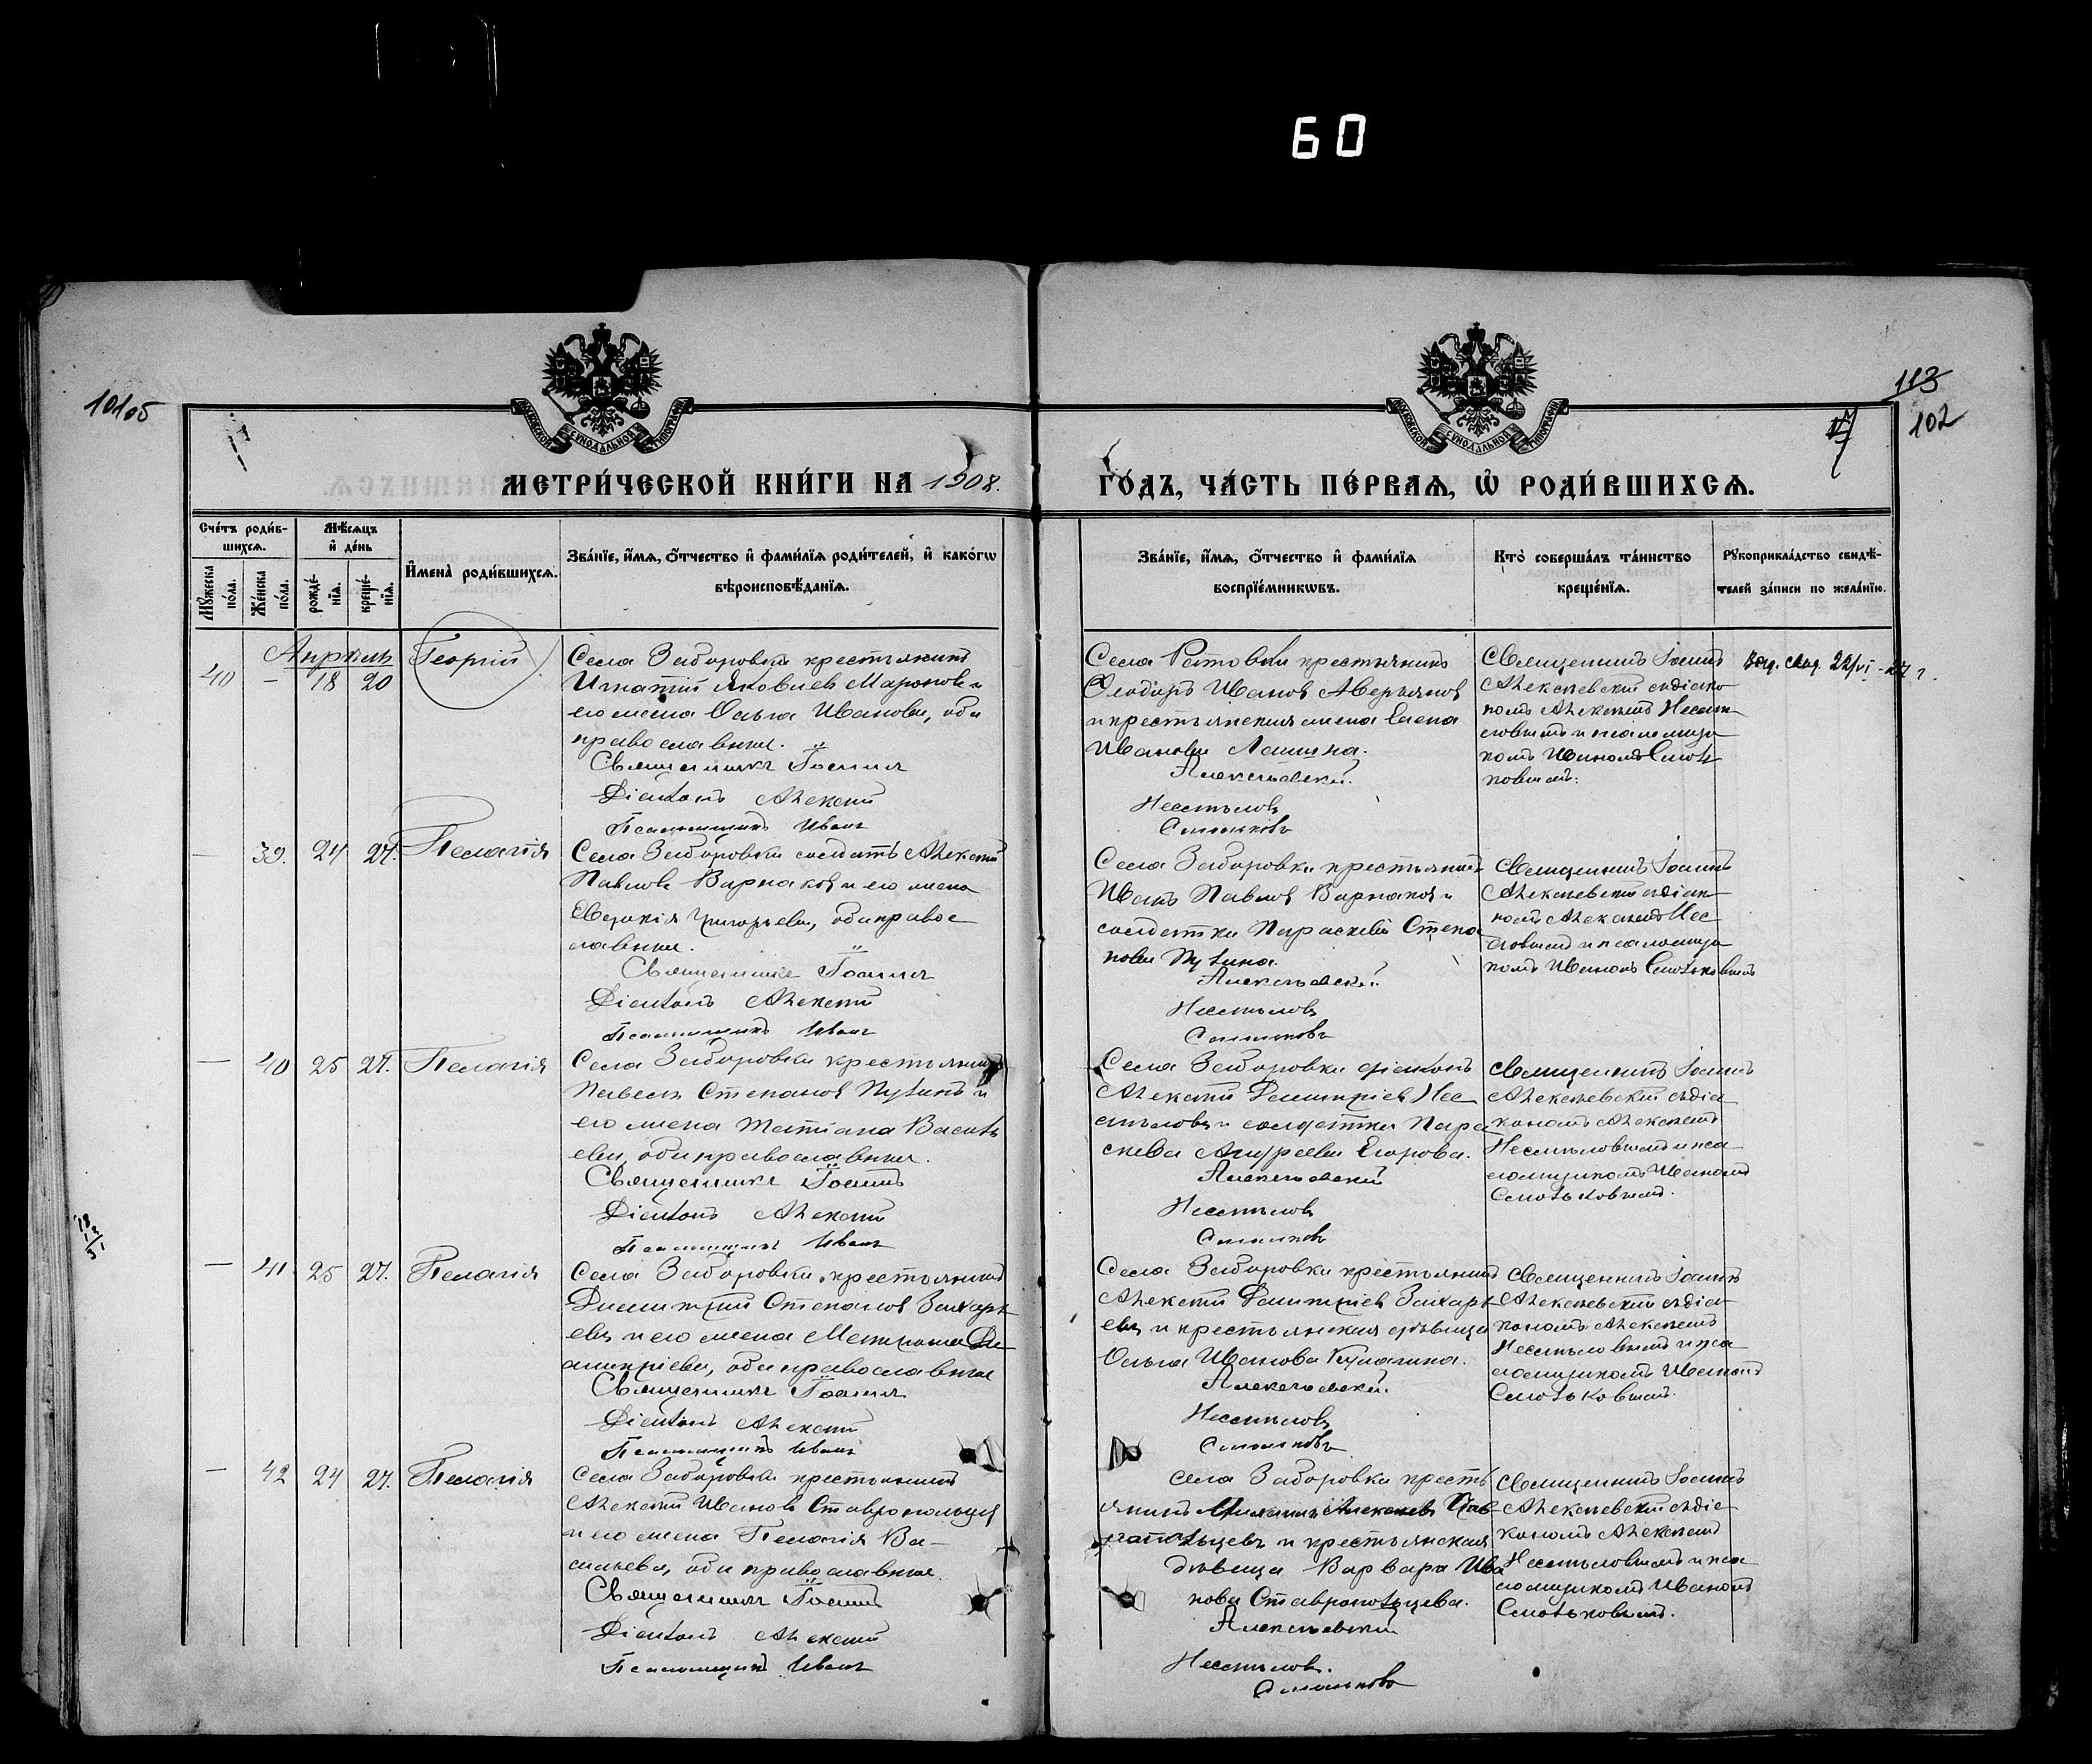 60
113
102
МОСКОВСКОЙ СѴНОДАЛЬНОЙ ТИПОГРАФІИ
МОСКОВСКОЙ СѴНОДАЛЬНОЙ ТИПОГРАФІИ
МЕТРИ́ЧЕСКОЙ КНИ́ГИ НА 1908.
ГО́ДЪ, ЧА́СТЬ ПЕ́РВАѦ, Ѡ҆ РОДИ́ВШИХСѦ.
Сче́тъ роди́в-
шихсѧ.
Мꙋ́жеска по́ла.
Же́нска по́ла.
Мѣ́сѧцъ
и҆ де́нь
рожде́-
нїѧ.
креще́-
нїѧ.
И҆мена̀ роди́вшихсѧ.
Зва́нїе, и҆́мѧ, ѻ҆́тчество и҆ фами́лїѧ роди́телей, и҆ како́гѡ
вѣроисповѣ́данїѧ.
Зва́нїе, и҆́мѧ, ѻ҆́тчество и҆ фами́лїѧ
воспрїе́мникѡвъ.
Кто̀ соверша́лъ та́инство
креще́нїѧ.
Рꙋкоприкла́дство свидѣ́-
телей за́писи по жела́нїю.
Апрѣль
40 – 18 20 Георгій
Села Заборовки крестьянинъ
Игнатій Яковлевъ Маронов и
его жена Ольга Иванова, оба
православные.
Священникъ Іоаннъ
Діаконъ Алексій
Псаломщикъ Иванъ
крестьянинъ
Ѳеодоръ Ивановъ Аверьяновъ
и крестьянская жена Елена
Иванова Лашина.
Алексѣевскій.
Несмѣловъ
Священникъ Іоаннъ
Алексѣевскій съ діако
номъ Алексѣемъ Несмѣ
ловымъ и псаломщи
комъ Иваномъ
22/VI – 27 г.
– 39. 24 27. Пелагія
Села Заборовки солдатъ Алексѣй
Павловъ Варнаковъ и его жена
Евдокія Григорьева, оба правос
лавные.
Священникъ Іоаннъ
Діаконъ Алексій
Псаломщикъ Иванъ
Села Заборовки крестьянинъ
Иванъ Павловъ Варнаковъ и
солдатка Параскева Степа
нова
Алексѣевскій
Несмѣловъ
Священникъ Іоаннъ
Алексѣевскій съ діако
номъ Алексѣемъ Нес
мѣловымъ и псаломщи
комъ Иваномъ
– 40 25 27. Пелагія
Села Заборовки крестьянинъ
Павелъ Степановъ и
его жена Татіана Василь
ева, оба православные.
Священникъ Іоаннъ
Діаконъ Алексій
Псаломщикъ Иванъ
Села Заборовки діаконъ
Алексій Димитріевъ Нес
мѣловъ и солдатка Пара
скева Андреева Егорова.
Алексѣевскій
Несмѣловъ
Священникъ Іоаннъ
Алексѣевскій съ діа
кономъ Алексѣемъ
Несмѣловымъ и пса
ломщикомъ Иваномъ
– 41 25 27. Пелагія
Села Заборовки крестьянинъ
Димитрій Степановъ Захарь
евъ и его жена Матрона Ди
митріева, оба православные
Священникъ Іоаннъ
Діаконъ Алексій
Псаломщикъ Иванъ
Села Заборовки крестьянинъ
Алексѣй Димитріевъ Захарь
евъ и крестьянская дѣвица
Ольга Иванова Кулагина.
Алексѣевскій.
Несмѣловъ
Священникъ Іоаннъ
Алексѣевскій съ діа
кономъ Алексѣемъ
Несмѣловымъ и пса
ломщикомъ Иваномъ
– 42 24 27. Пелагія
Села Заборовки крестьянинъ
Алексѣй Ивановъ Ставропольцев
и его жена Пелагія Ва-
сильева, оба православные.
Священникъ Іоаннъ
Діаконъ Алексій
Псаломщикъ Иванъ
села Заборовки кресть
янинъ Алексѣевъ Став
ропольцевъ и крестьянская
дѣвица Варвара Ива
нова Ставропольцева.
Алексѣевскій
Несмѣловъ.
Священникъ Іоаннъ
Алексѣевскій съ діа
кономъ Алексѣемъ
Несмѣловымъ и пса
ломщикомъ Иваномъ